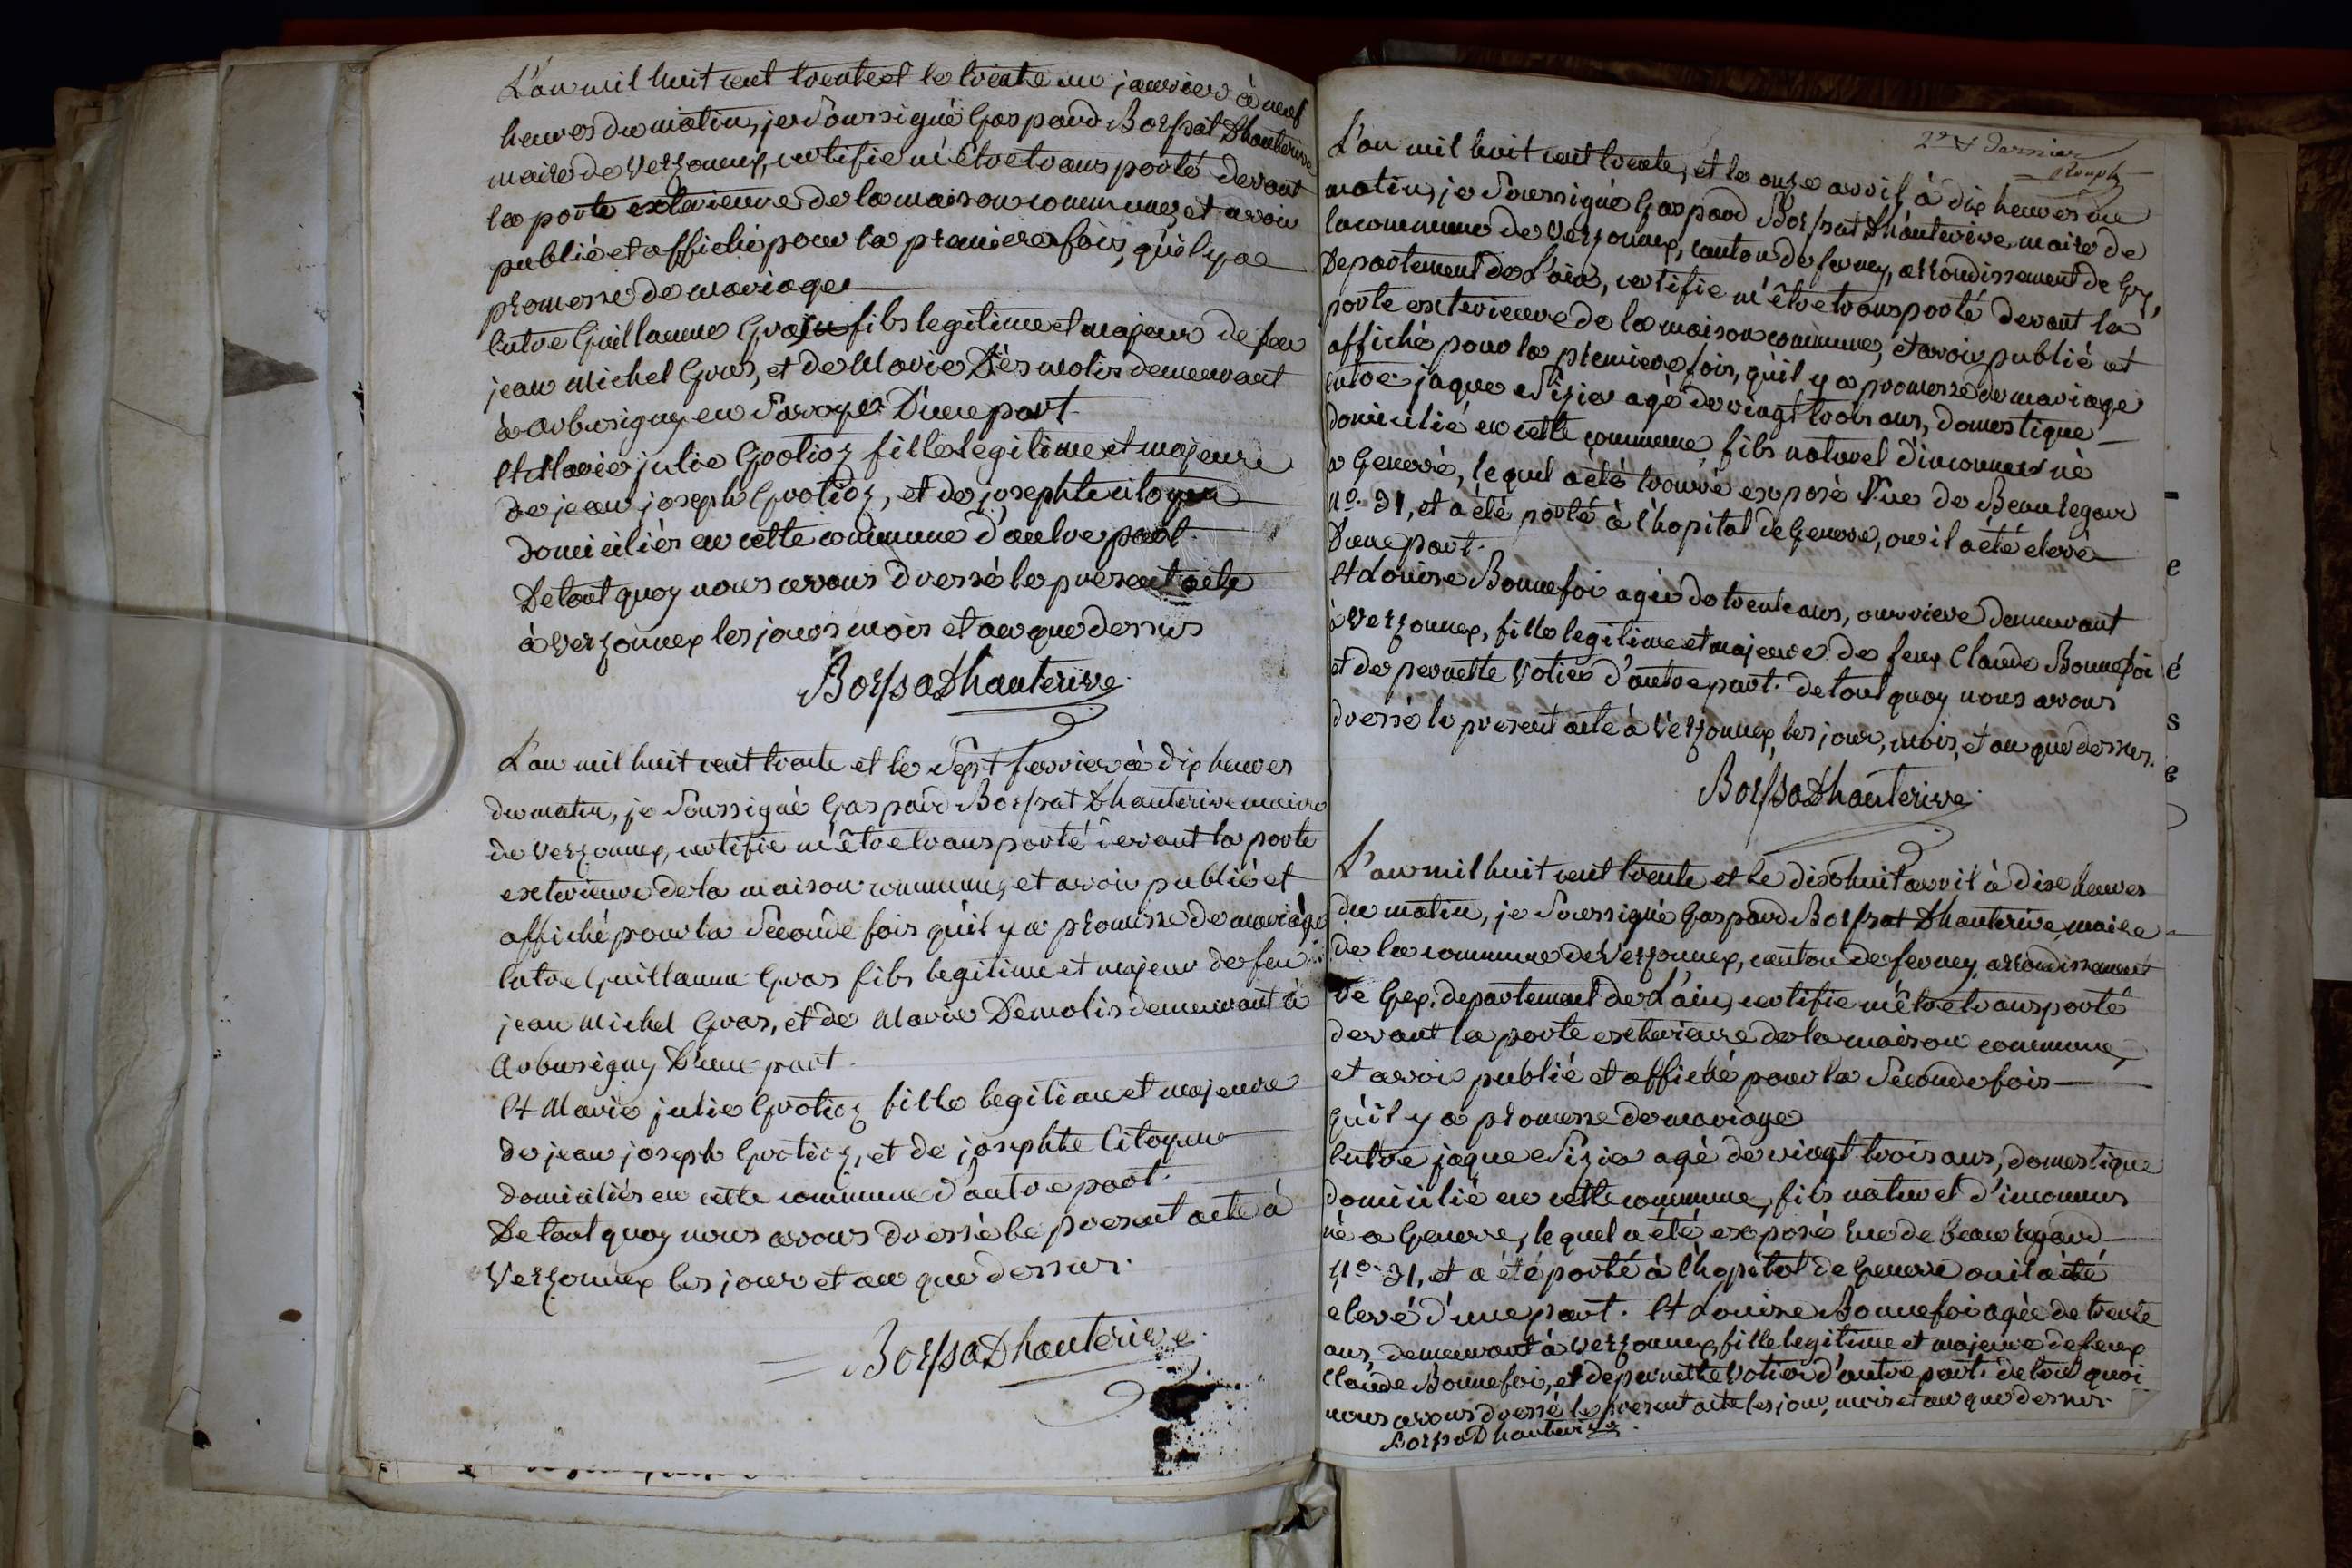 L'an mil huit cent trente et le trente un janvier à neuf
heures du matin, je Soussigné Gaspard Borssat Dhauterive
maire de Verzonnex, certifie m'être transporté devant
la porte exterieure de la maison commune, et avoir
publié et affiché pour la premiere fois, qu'il y a
promesse de mariage
Entre Guillaume Gras fils legitime et majeur de feu
jean Michel Gras, et de Marie Dèsmolis demeurant
à Arbusigny en Savoye D'une part
Et Marie julie Grotioz fille legitime et majeure
de jean joseph Grotioz, et de josephte citoyen
domiciliés en cette commune d'autre part.
De tout quoy nous avons dressé le present acte
à Verzonnex les jours mois et an que dessus
BorssaDhauterive
L'an mil huit cent trente et le Sept fevrier à dix heures
du matin, je Soussigné Gaspard Borssat Dhauterive maire
de Verzonnex, certifie m'être transporté devant la porte
exterieure de la maison commune, et avoir publié et
affiché pour la Seconde fois qu'il y a promesse de mariage
Entre Guillaume Gras fils legitime et majeur de feu
jean Michel Gras, et de Marie Démolis demeurant à
Arbusigny D'une part.
Et Marie julie Grotioz fille legitime et majeure
de jean joseph Grotioz, et de josephte Citoyen
domiciliés en cette commune d'autre part.
De tout quoy nous avons dressé le present acte à
Verzonnex les jour et an que dessus.
BorssaDhauterive
2e & dernier
L'an mil huit cent trente, et le onze avril à dix heures du
matin, je Soussigné Gaspard Borssat Dhauterive, maire de
la commune de Verzonnex, canton de ferney, arrondissement de Gex,
Departement de L'ain, certifie m'être transporté devant la
porte exterieure de la maison commune, et avoir publié et
affiché pour la premiere fois, qu'il y a promesse de mariage
entre jaque Sizie agé de vingt trois ans, domestique
domicilié en cette commune, fils naturel d'inconnus né
a Genevè, lequel a été trouvé exposé Rue de Beauregar
No. 31, et a été porté à l'hopital de Geneve, ou il a été elevé
D'une part.
Et Louise Bonnefoi agée de trente ans, ouvriere demeurant
à Verzonnex, fille legitime et majeure de feux Claude Bonnefoi
et de pernette Votier d'autre part. de tout quoy nous avons
dressé le present acte à Verzonnex, les jour, mois, et an que dessus.
BorssaDhauterive
L'an mil huit cent trente et le dixhuit avril à dixe heures
du matin, je Soussigné Gaspard Borssat Dhauterive, maire
de la commune de Verzonnex, canton de ferney, arrondissement
de Gex, departement de L'ain, certifie m'être transporté
devant la porte exterieure de la maison commune,
et avoir publié et affiché pour la Seconde fois
qu'il y a promesse de mariage
Entre jaque Sizie agé de vingt trois ans, domestique
domicilié en cette commune, fils naturel d'inconnus
né a Geneve, lequel a été exposé rue de beauregard
No. 31, et a été porté à l'hopital de Geneve ou il a été
elevé d'une part. Et Louise Bonnefoi agée de trente
ans, demeurant à Verzonnex, fille legitime et majeure de feux
Claude Bonnefoi, et de pernette Votier d'autre part. de tout quoi
nous avons dressé le present acte les jour, mois et an que dessus.
BorssaDhauterive